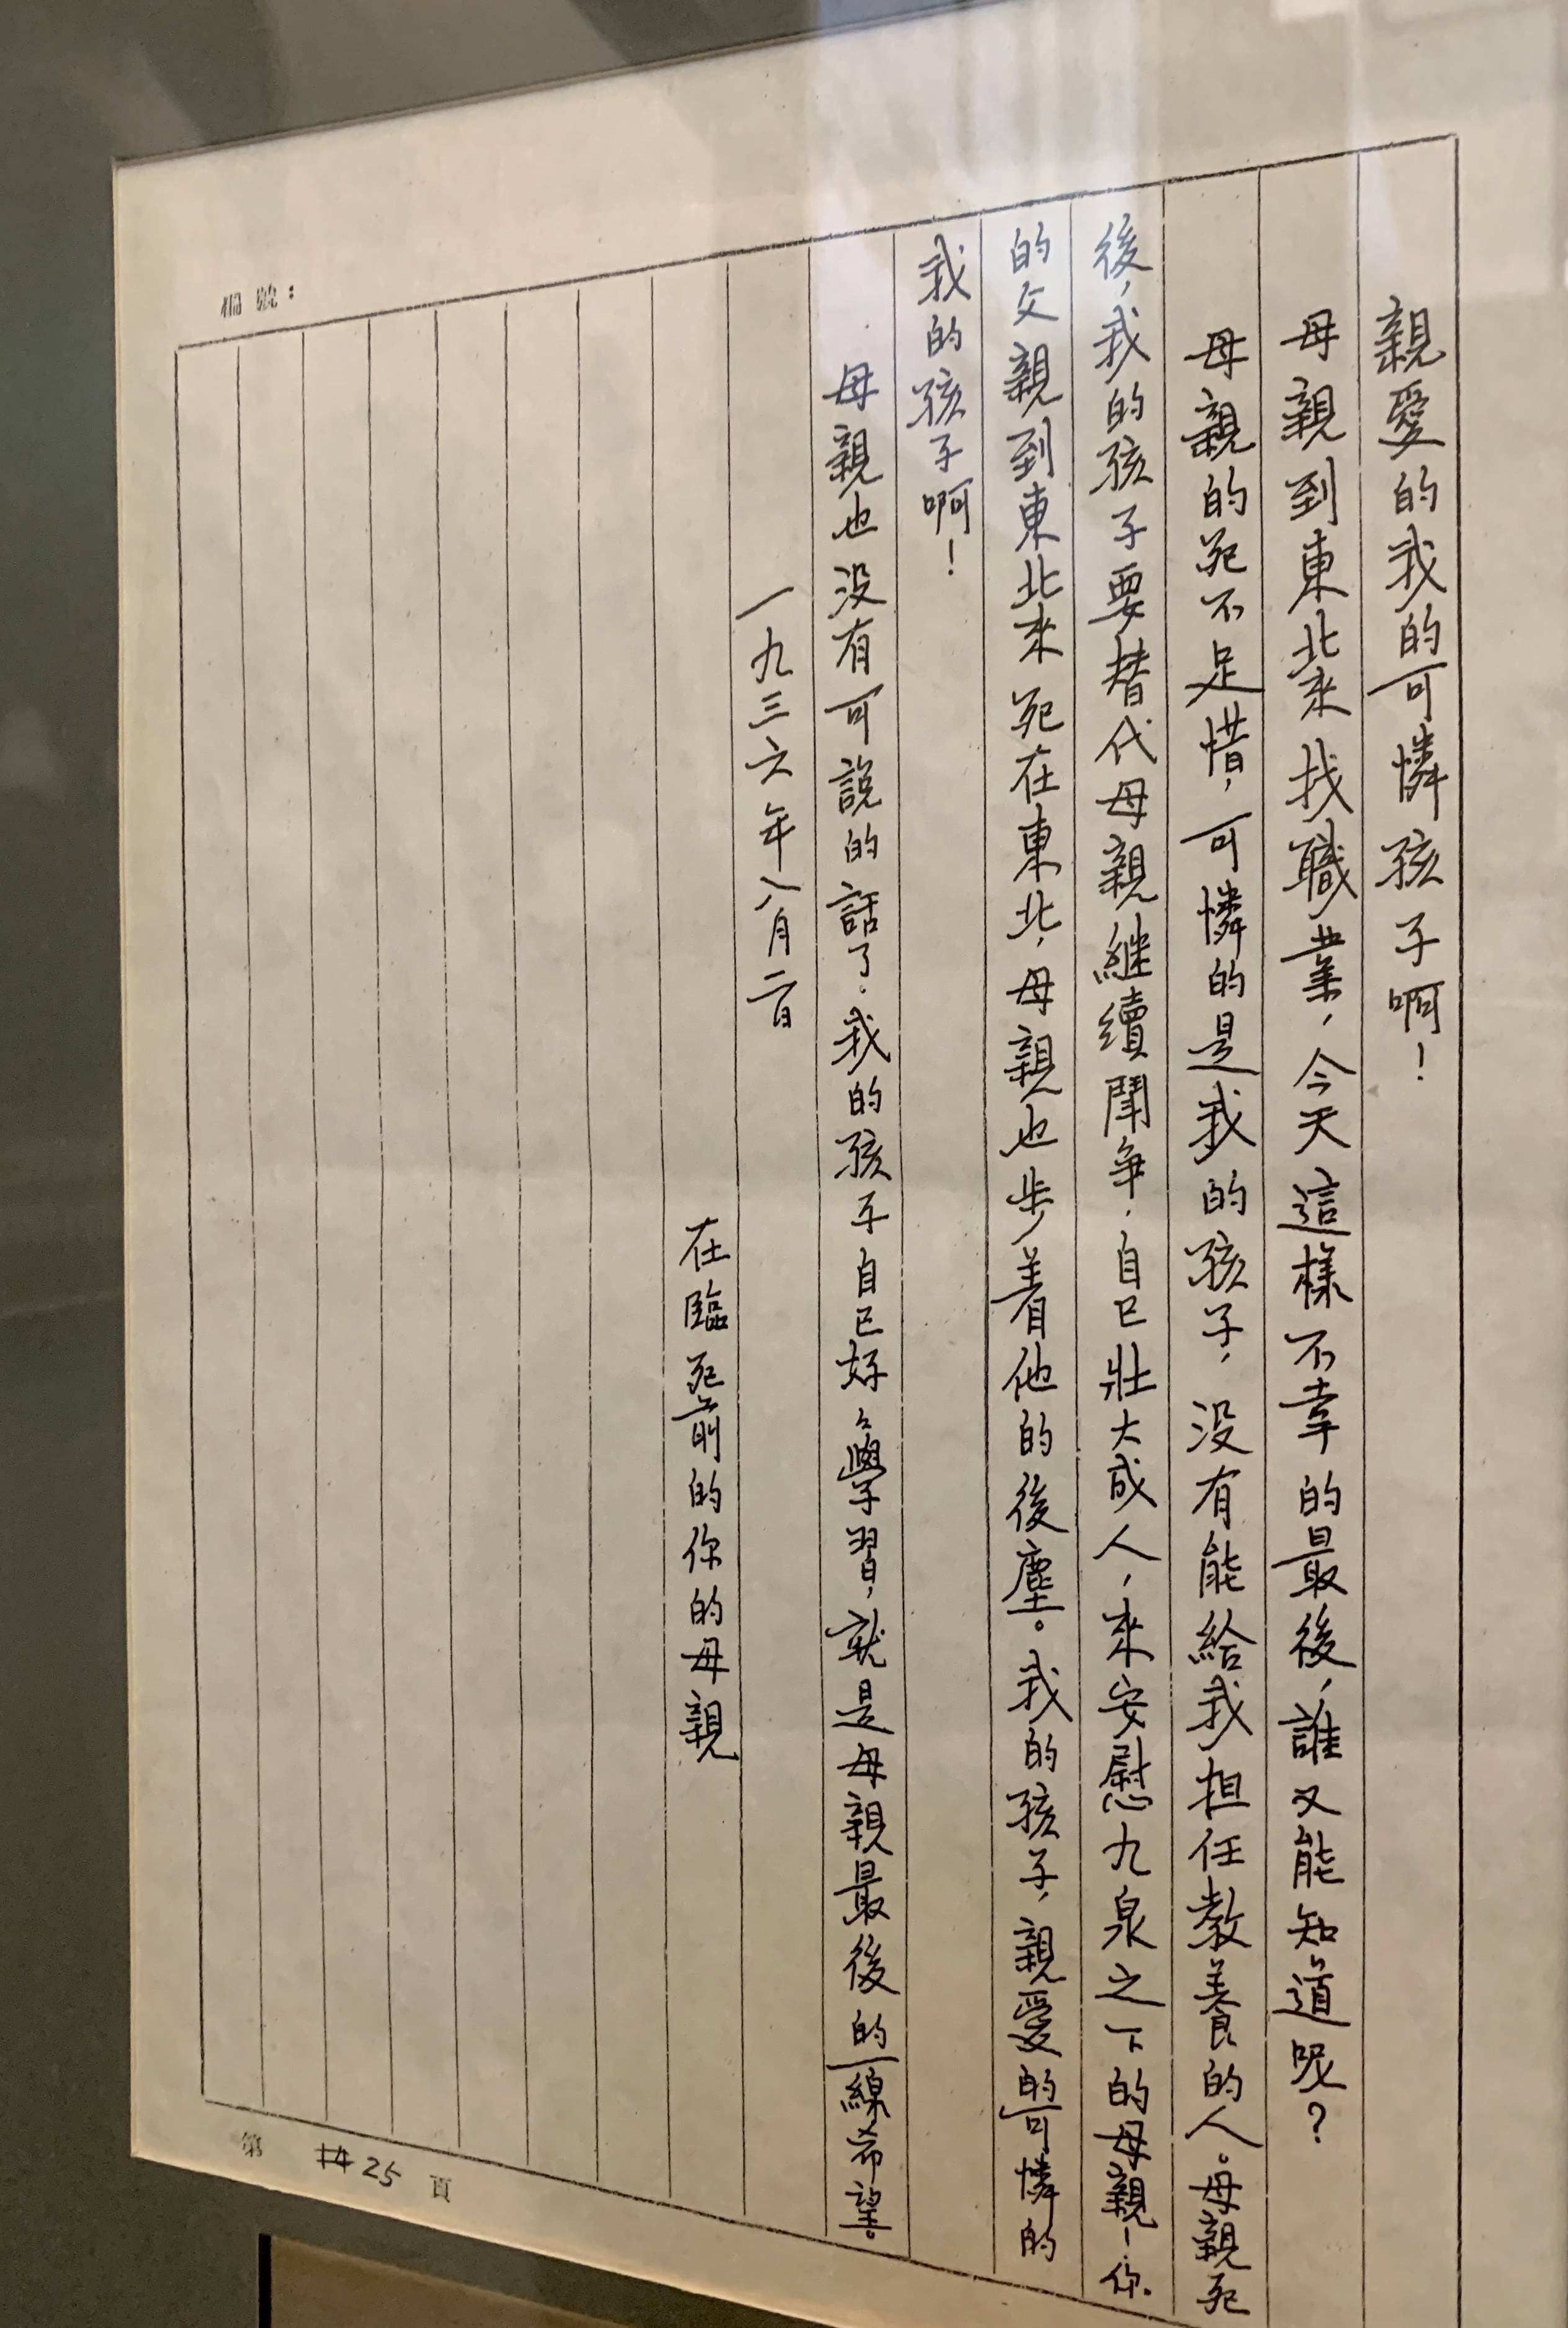 親愛的我的可憐孩子啊！
母親到東北來找職業，今天這樣不幸的最後，誰又能知道呢？
母親的死不足惜，可憐的是我的孩子，沒有能給我担任教養的人。母親死
後，我的孩子要替代母親継續鬪争，自己壯大成人，來安慰九泉之下的母親！你
的父親到東北來死在東北，母親也步着他的後塵。我的孩子，親愛的可憐的
我的孩子啊！
母親也沒有可說的話了．我的孩子自己好々學習，就是母親最後的一線希望。
一九三六年八月二日
在臨死前的你的母親
編號：
第 25 頁